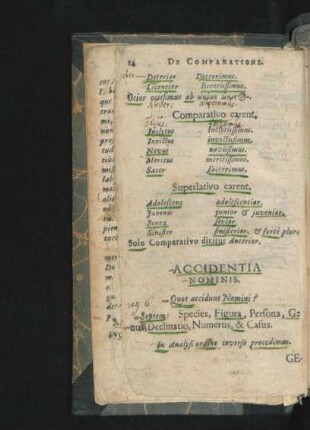 14 DE COMPARATIONE.
Deterior Deterrimus.
Licentior licentissimus.
Ocior ocissimus ab
Comparativo carent.
Inclytus Inclytissimus.
Invictus invictissimus.
Novus novissimus.
Meritus meritissimus.
Sacer sacerrimus.
Superlativo carent.
Adolescens adolescentior.
Juvenis junior & juvenior.
Senex senior.
Sinister sinisterior, & fortè plura
Solo Comparativo dicitur Anterior.
ACCIDENTIA
NOMINIS.
Quot accidunt Nomini?
Septem: Species, Figura, Persona, Ge-
nus, Declinatio, Numerus, & Casus.
In Analysi ordine inverso procedimus.
GE-